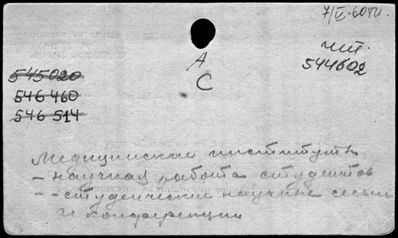 7/V-60г.
А
С
чит.
544602
545020
546460
546514
Медицинские институты
- научная работа студентов
- - студенческие научные сессии
и конференции